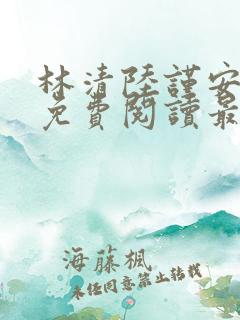 林清陸謹安
免費閱讀最
海藤楓
未任同意禁止转载